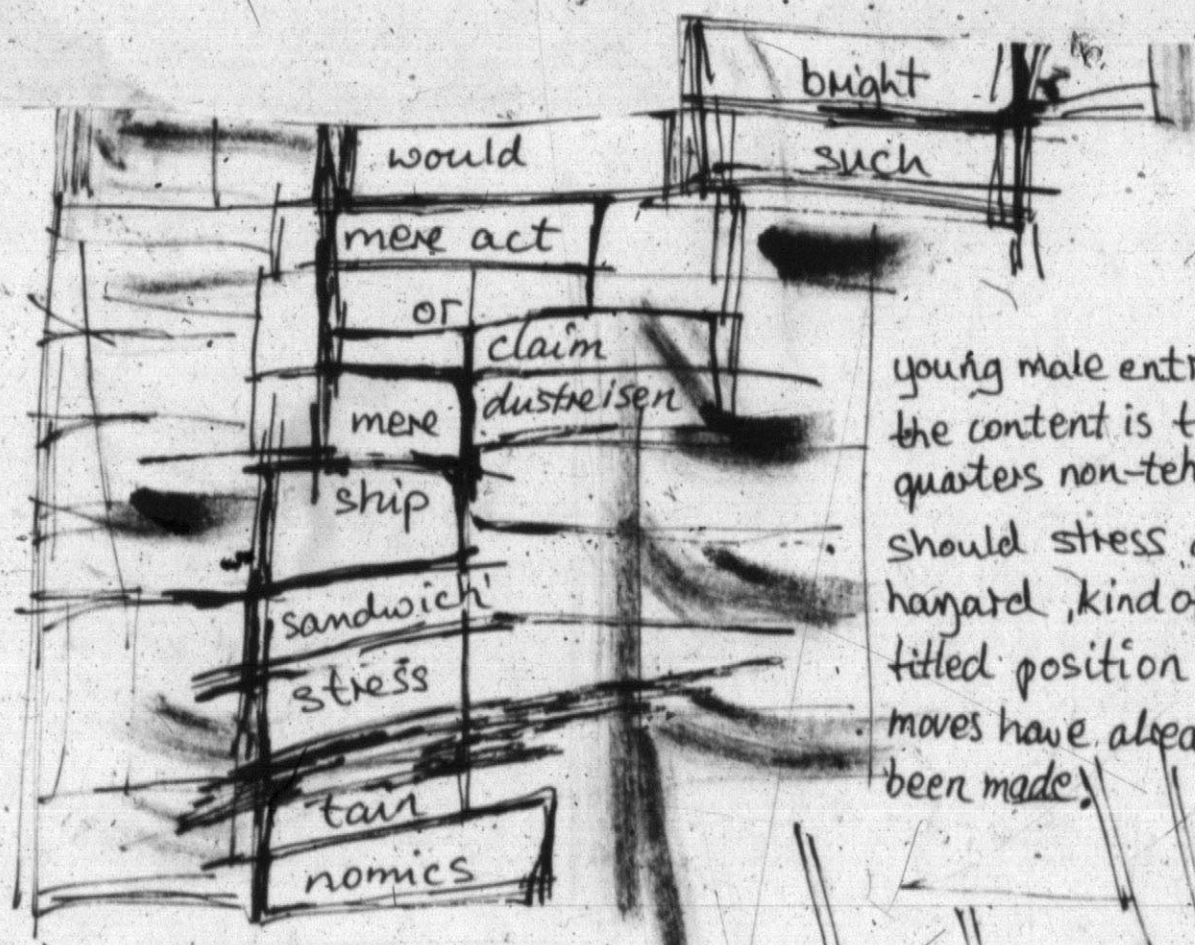 bright
would
such
mere act
or
claim
mere
dustreisen
ship
sandwich'
stress
tain
nomics
young male entr
the content is t
quarters non-teh
should stress
hazard, kind o
titled position
moves have alrea
been made!